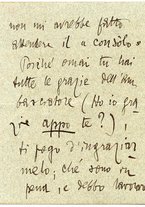 non mi avrebbe fatto
attendere il a consolo.
Poiché omai tu hai
tutte le grazie dell'Am
basciatore (Ho io gra
zie appo te?),
ti prego d'ingraziar
melo; ché sono in
pena, e debbo lavorare